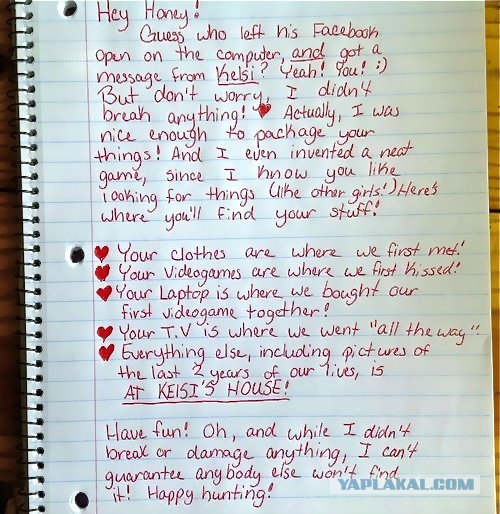 Hey Honey!
Guess who left his Facebook
open on the computer, and got a
message from Kelsi? Yeah! You! :)
But don't worry, I didn't
break anything! ♥ Actually, I was
nice enough to package your
things! And I even invented a neat
game, since I know you like
looking for things (like other girls!) Here's
where you'll find your stuff!
♥ Your clothes are where we first met!
♥ Your videogames are where we first kissed!
♥ Your Laptop is where we bought our
first videogame together!
♥ Your T.V is where we went "all the way".
♥ Everything else, including pictures of
the last 2 years of our lives, is
AT KELSI'S HOUSE!
Have fun! Oh, and while I didn't
break or damage anything, I can't
guarantee anybody else won't find
it! Happy hunting!
YAPLAKAL.COM